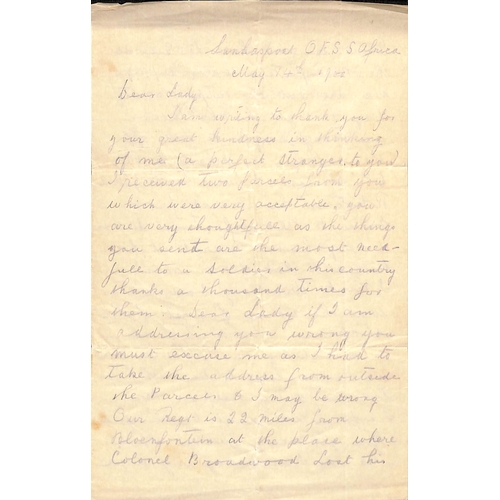 O F.S. S Africa
May 7th 1900
Dear Lady
I am writing to thank you for
your great kindness in thinking
of me (a perfect stranger to you)
I received two parcels from you
which were very acceptable, you
are very thoughtfull as the things
you send are the most need-
full to a Soldier in this country
thanks a thousand times for
them. Dear Lady if I am
addressing you wrong you
must excuse me as I had to
take the address from outside
the Parcels & I may be wrong
Our Regt is 22 miles from
Bloemfontein at the place where
Colonel Broadwood Lost his